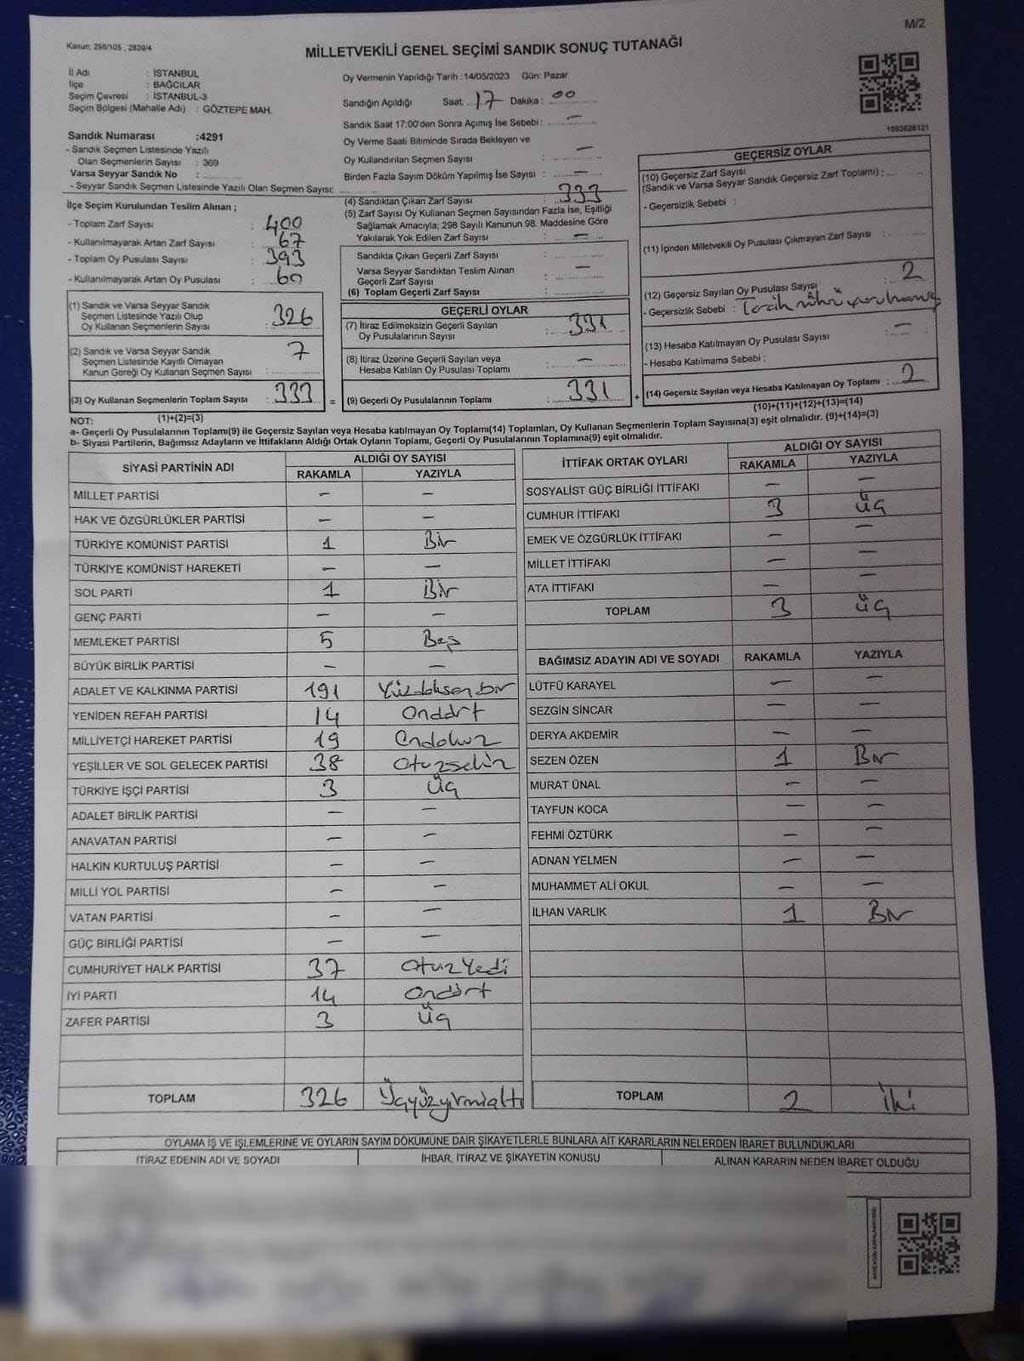 M/2
Kanun: 298/105 , 2839/4
MİLLETVEKİLİ GENEL SEÇİMİ SANDIK SONUÇ TUTANAĞI
İl Adı : İSTANBUL
İlçe : BAĞCILAR
Seçim Çevresi : İSTANBUL-3
Seçim Bölgesi (Mahalle Adı) : GÖZTEPE MAH.
Oy Vermenin Yapıldığı Tarih :14/05/2023 Gün: Pazar
Sandığın Açıldığı Saat: 17 Dakika: 00
Sandık Saat 17:00'den Sonra Açımış İse Sebebi : —
Oy Verme Saati Bitiminde Sırada Bekleyen ve
Oy Kullandırılan Seçmen Sayısı : —
Birden Fazla Sayım Döküm Yapılmış İse Sayısı : —
Sandık Numarası :4291
- Sandık Seçmen Listesinde Yazılı
Olan Seçmenlerin Sayısı : 369
Varsa Seyyar Sandık No :
- Seyyar Sandık Seçmen Listesinde Yazılı Olan Seçmen Sayısı:
İlçe Seçim Kurulundan Teslim Alınan ;
- Toplam Zarf Sayısı : 400
- Kullanılmayarak Artan Zarf Sayısı : 67
- Toplam Oy Pusulası Sayısı : 393
- Kullanılmayarak Artan Oy Pusulası : 60
(1) Sandık ve Varsa Seyyar Sandık
Seçmen Listesinde Yazılı Olup
Oy Kullanan Seçmenlerin Sayısı : 326
(2) Sandık ve Varsa Seyyar Sandık
Seçmen Listesinde Kayıtlı Olmayan
Kanun Gereği Oy Kullanan Seçmen Sayısı : 7
(3) Oy Kullanan Seçmenlerin Toplam Sayısı : 333 =
(1)+(2)=(3)
(4) Sandıktan Çıkan Zarf Sayısı : 333
(5) Zarf Sayısı Oy Kullanan Seçmen Sayısından Fazla İse, Eşitliği
Sağlamak Amacıyla; 298 Sayılı Kanunun 98. Maddesine Göre
Yakılarak Yok Edilen Zarf Sayısı : —
Sandıkta Çıkan Geçerli Zarf Sayısı : —
Varsa Seyyar Sandıktan Teslim Alınan
Geçerli Zarf Sayısı : —
(6) Toplam Geçerli Zarf Sayısı :
GEÇERLİ OYLAR
(7) İtiraz Edilmeksizin Geçerli Sayılan
Oy Pusulalarının Sayısı : 331
(8) İtiraz Üzerine Geçerli Sayılan veya
Hesaba Katılan Oy Pusulası Toplamı : —
(9) Geçerli Oy Pusulalarının Toplamı : 331 +
1093626121
GEÇERSİZ OYLAR
(10) Geçersiz Zarf Sayısı
(Sandık ve Varsa Seyyar Sandık Geçersiz Zarf Toplamı) :
- Geçersizlik Sebebi :
(11) İçinden Milletvekili Oy Pusulası Çıkmayan Zarf Sayısı :
(12) Geçersiz Sayılan Oy Pusulası Sayısı : 2
- Geçersizlik Sebebi : Tercih mührü
(13) Hesaba Katılmayan Oy Pusulası Sayısı : —
- Hesaba Katılmama Sebebi :
(14) Geçersiz Sayılan veya Hesaba Katılmayan Oy Toplamı : 2
(10)+(11)+(12)+(13)=(14)
NOT:
a- Geçerli Oy Pusulalarının Toplamı(9) ile Geçersiz Sayılan veya Hesaba Katılmayan Oy Toplamı(14) Toplamları, Oy Kullanan Seçmenlerin Toplam Sayısına(3) eşit olmalıdır. (9)+(14)=(3)
b- Siyasi Partilerin, Bağımsız Adayların ve İttifakların Aldığı Ortak Oyların Toplamı, Geçerli Oy Pusulalarının Toplamına(9) eşit olmalıdır.
SİYASİ PARTİNİN ADI ALDIĞI OY SAYISI
RAKAMLA YAZIYLA
MİLLET PARTİSİ — —
HAK VE ÖZGÜRLÜKLER PARTİSİ — —
TÜRKİYE KOMÜNİST PARTİSİ 1 Bir
TÜRKİYE KOMÜNİST HAREKETİ — —
SOL PARTİ 1 Bir
GENÇ PARTİ — —
MEMLEKET PARTİSİ 5 Beş
BÜYÜK BİRLİK PARTİSİ — —
ADALET VE KALKINMA PARTİSİ 191 Yüzdoksanbir
YENİDEN REFAH PARTİSİ 14 Ondört
MİLLİYETÇİ HAREKET PARTİSİ 19 Ondokuz
YEŞİLLER VE SOL GELECEK PARTİSİ 38 Otuzsekiz
TÜRKİYE İŞÇİ PARTİSİ 3 Üç
ADALET BİRLİK PARTİSİ — —
ANAVATAN PARTİSİ — —
HALKIN KURTULUŞ PARTİSİ — —
MİLLİ YOL PARTİSİ — —
VATAN PARTİSİ — —
GÜÇ BİRLİĞİ PARTİSİ — —
CUMHURİYET HALK PARTİSİ 37 OtuzYedi
İYİ PARTİ 14 Ondört
ZAFER PARTİSİ 3 Üç
TOPLAM 326 Üçyüzyirmialtı
İTTİFAK ORTAK OYLARI ALDIĞI OY SAYISI
RAKAMLA YAZIYLA
SOSYALİST GÜÇ BİRLİĞİ İTTİFAKI — —
CUMHUR İTTİFAKI 3 Üç
EMEK VE ÖZGÜRLÜK İTTİFAKI — —
MİLLET İTTİFAKI — —
ATA İTTİFAKI — —
TOPLAM 3 üç
BAĞIMSIZ ADAYIN ADI VE SOYADI RAKAMLA YAZIYLA
LÜTFÜ KARAYEL — —
SEZGİN SİNCAR — —
DERYA AKDEMİR — —
SEZEN ÖZEN 1 Bir
MURAT ÜNAL — —
TAYFUN KOCA — —
FEHMİ ÖZTÜRK — —
ADNAN YELMEN — —
MUHAMMET ALİ OKUL — —
İLHAN VARLIK 1 Bir
TOPLAM 2 İki
OYLAMA İŞ VE İŞLEMLERİNE VE OYLARIN SAYIM DÖKÜMÜNE DAİR ŞİKAYETLERLE BUNLARA AİT KARARLARIN NELERDEN İBARET BULUNDUKLARI
İTİRAZ EDENİN ADI VE SOYADI İHBAR, İTİRAZ VE ŞİKAYETİN KONUSU ALINAN KARARIN NEDEN İBARET OLDUĞU